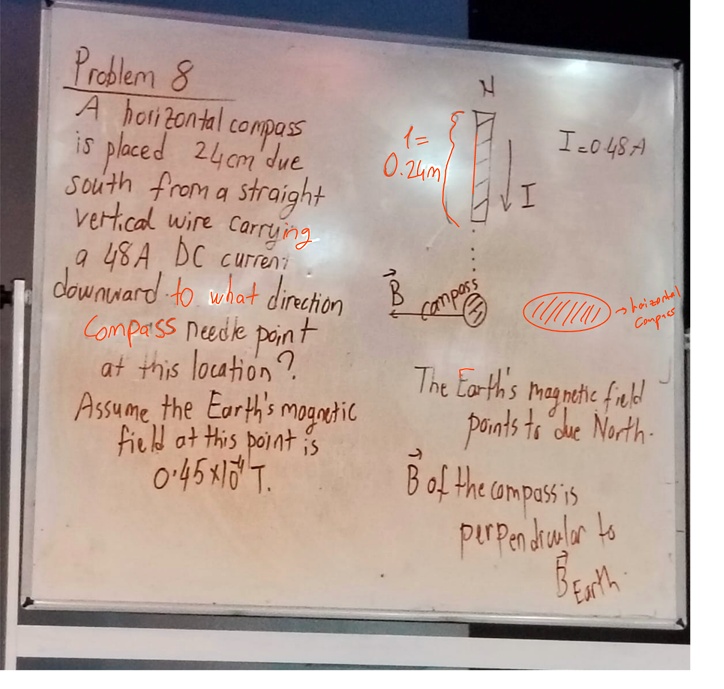 Problem 8
A horizontal compass
is placed 24cm due
south from a straight
vertical wire carrying
a 48A DC current
downward to what direction
Compass needle point
at this location?
Assume the Earth's magnetic
field at this point is
0.45x10⁻⁴ T.
N
l =
0.24m
I
I = 0.48A
B⃗
compass
→ hoizontal
compass
The Earth's magnetic field
points to due North.
B⃗ of the compass is
perpendicular to
B⃗ Earth.